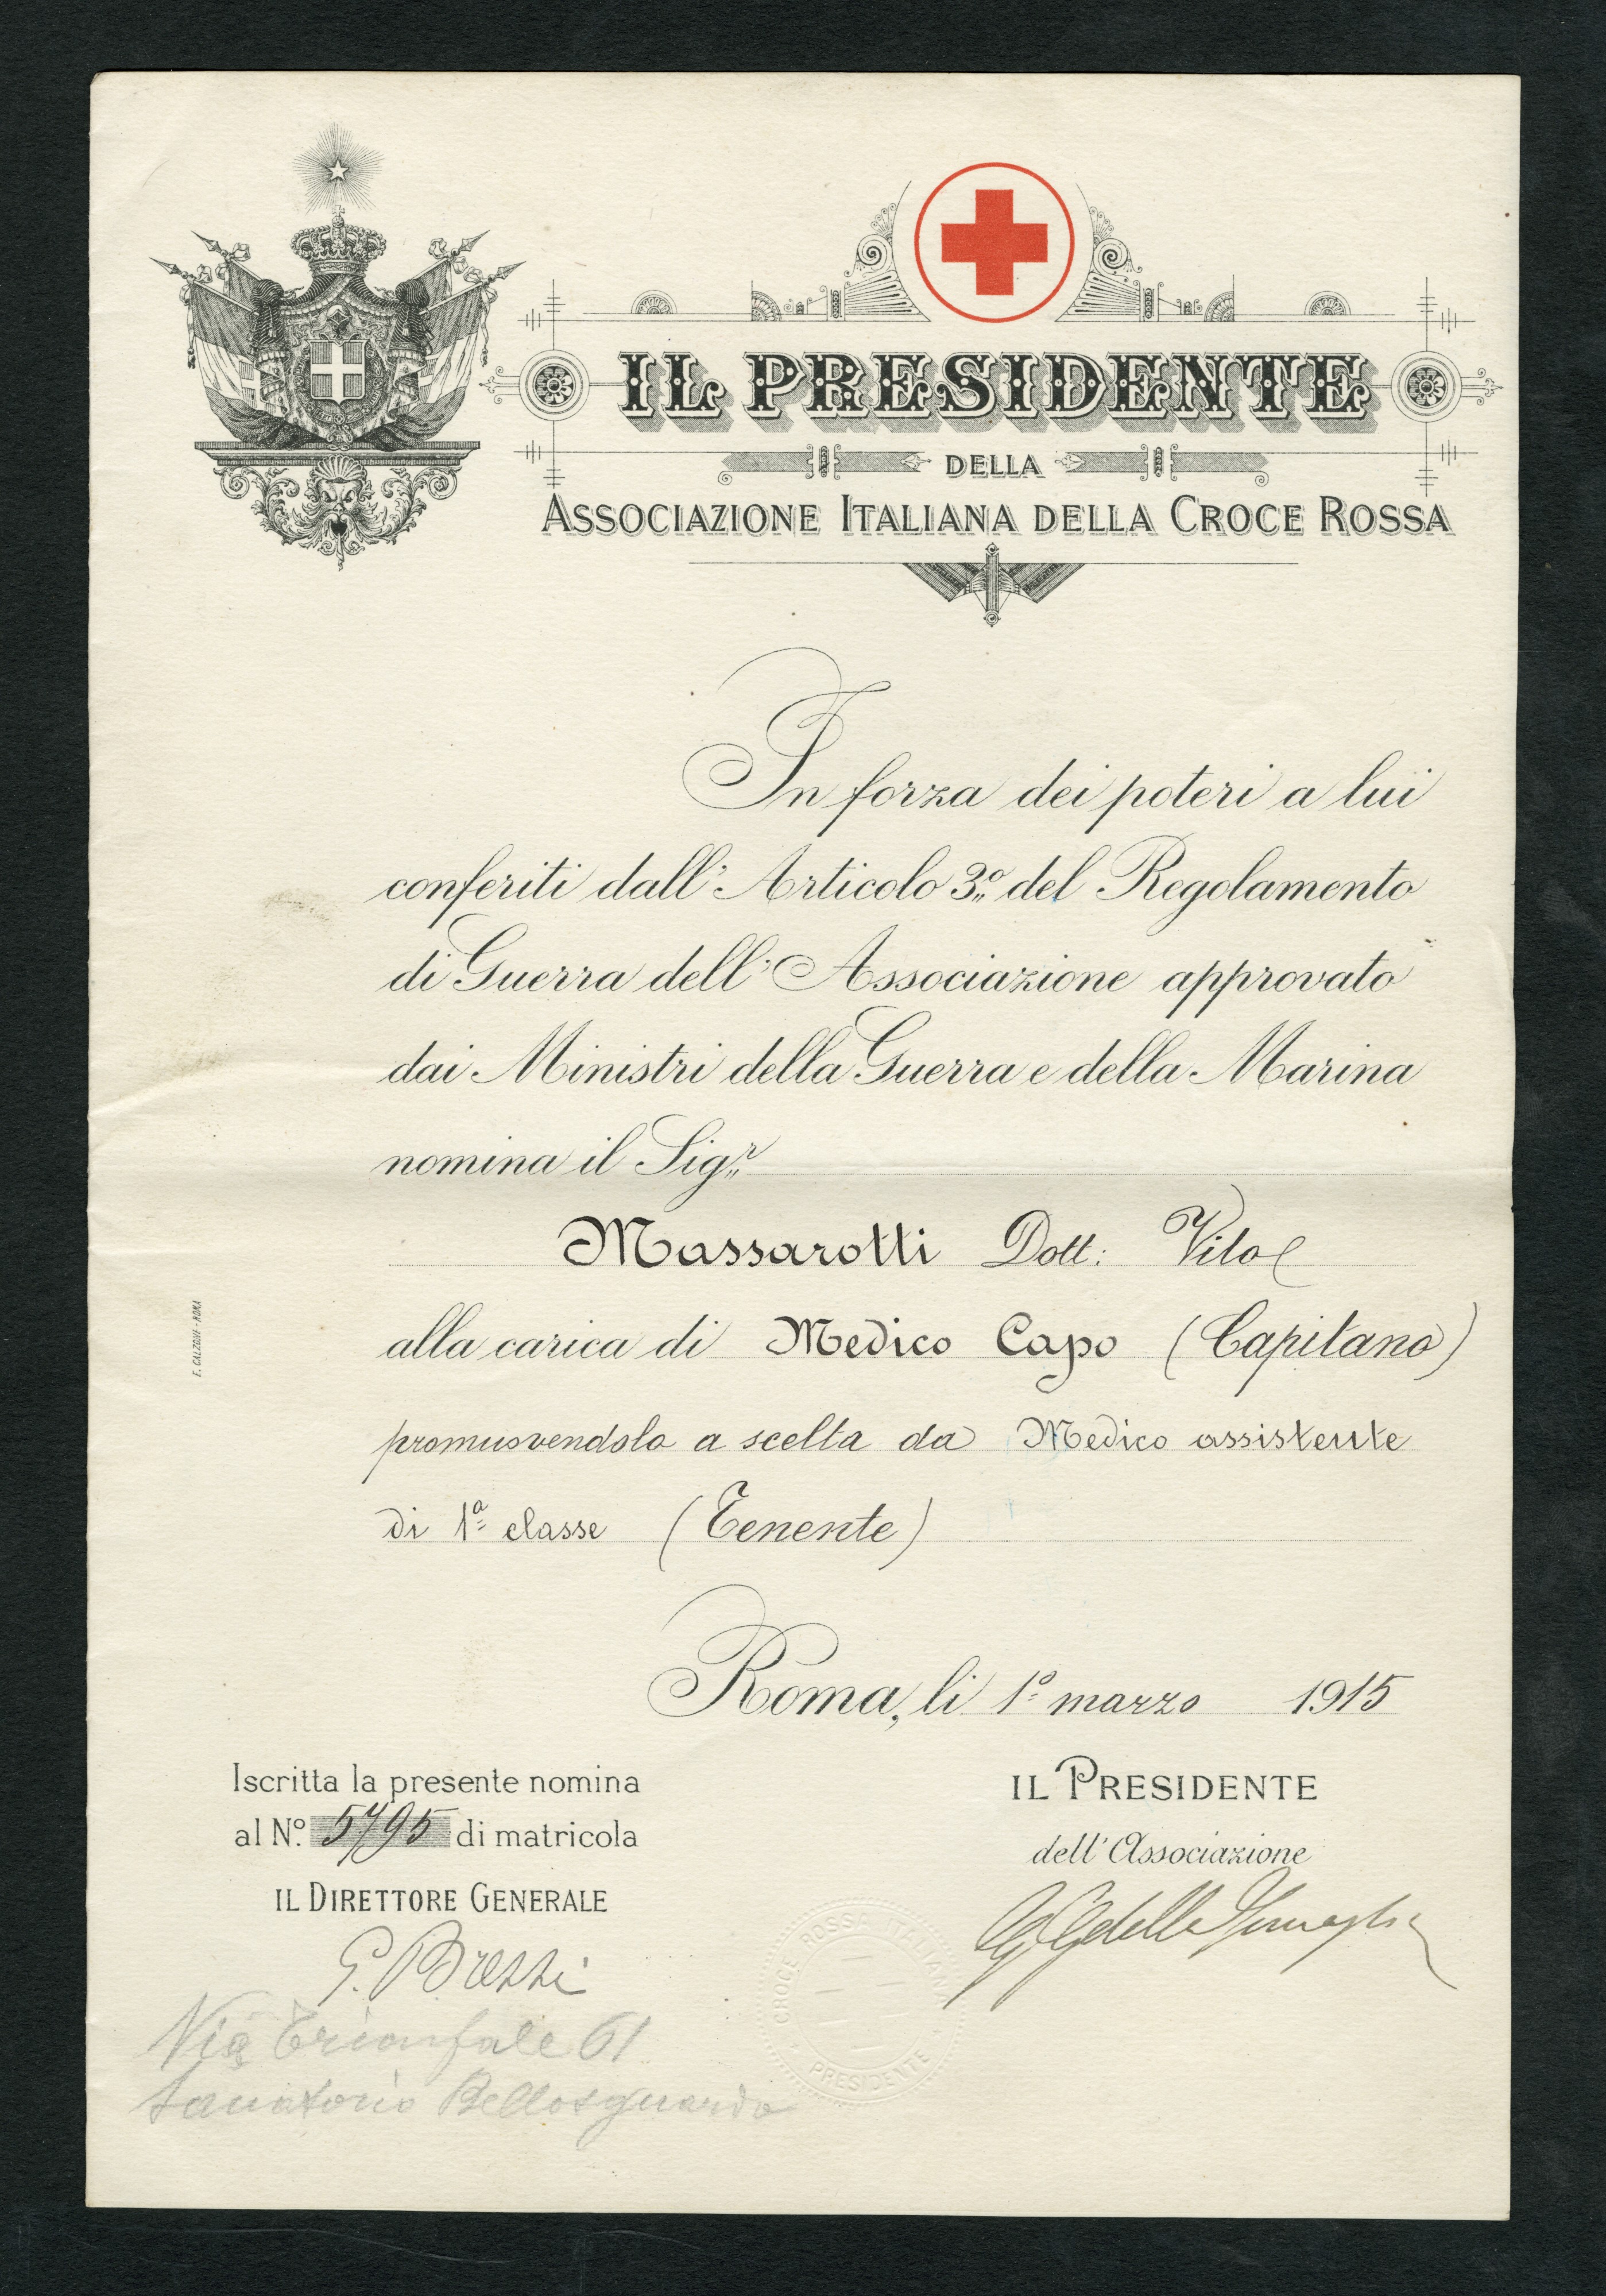 IL PRESIDENTE
DELLA
ASSOCIAZIONE ITALIANA DELLA CROCE ROSSA
In forza dei poteri a lui
conferiti dall'Articolo 3º del Regolamento
di Guerra dell'Associazione approvato
dai Ministri della Guerra e della Marina
nomina il Sigr
Massarotti Dott: Vito
alla carica di Medico Capo (Capitano)
promuovendolo a scelta da Medico assistente
di 1ª classe (Tenente)
Roma, li 1º marzo 1915
Iscritta la presente nomina
al Nº 5795 di matricola
IL DIRETTORE GENERALE
IL PRESIDENTE
dell'Associazione
G. della Somaglia
CROCE ROSSA ITALIANA
PRESIDENTE
Via Trionfale 61
Sanatorio Bellosguardo
F. CALZONE - ROMA